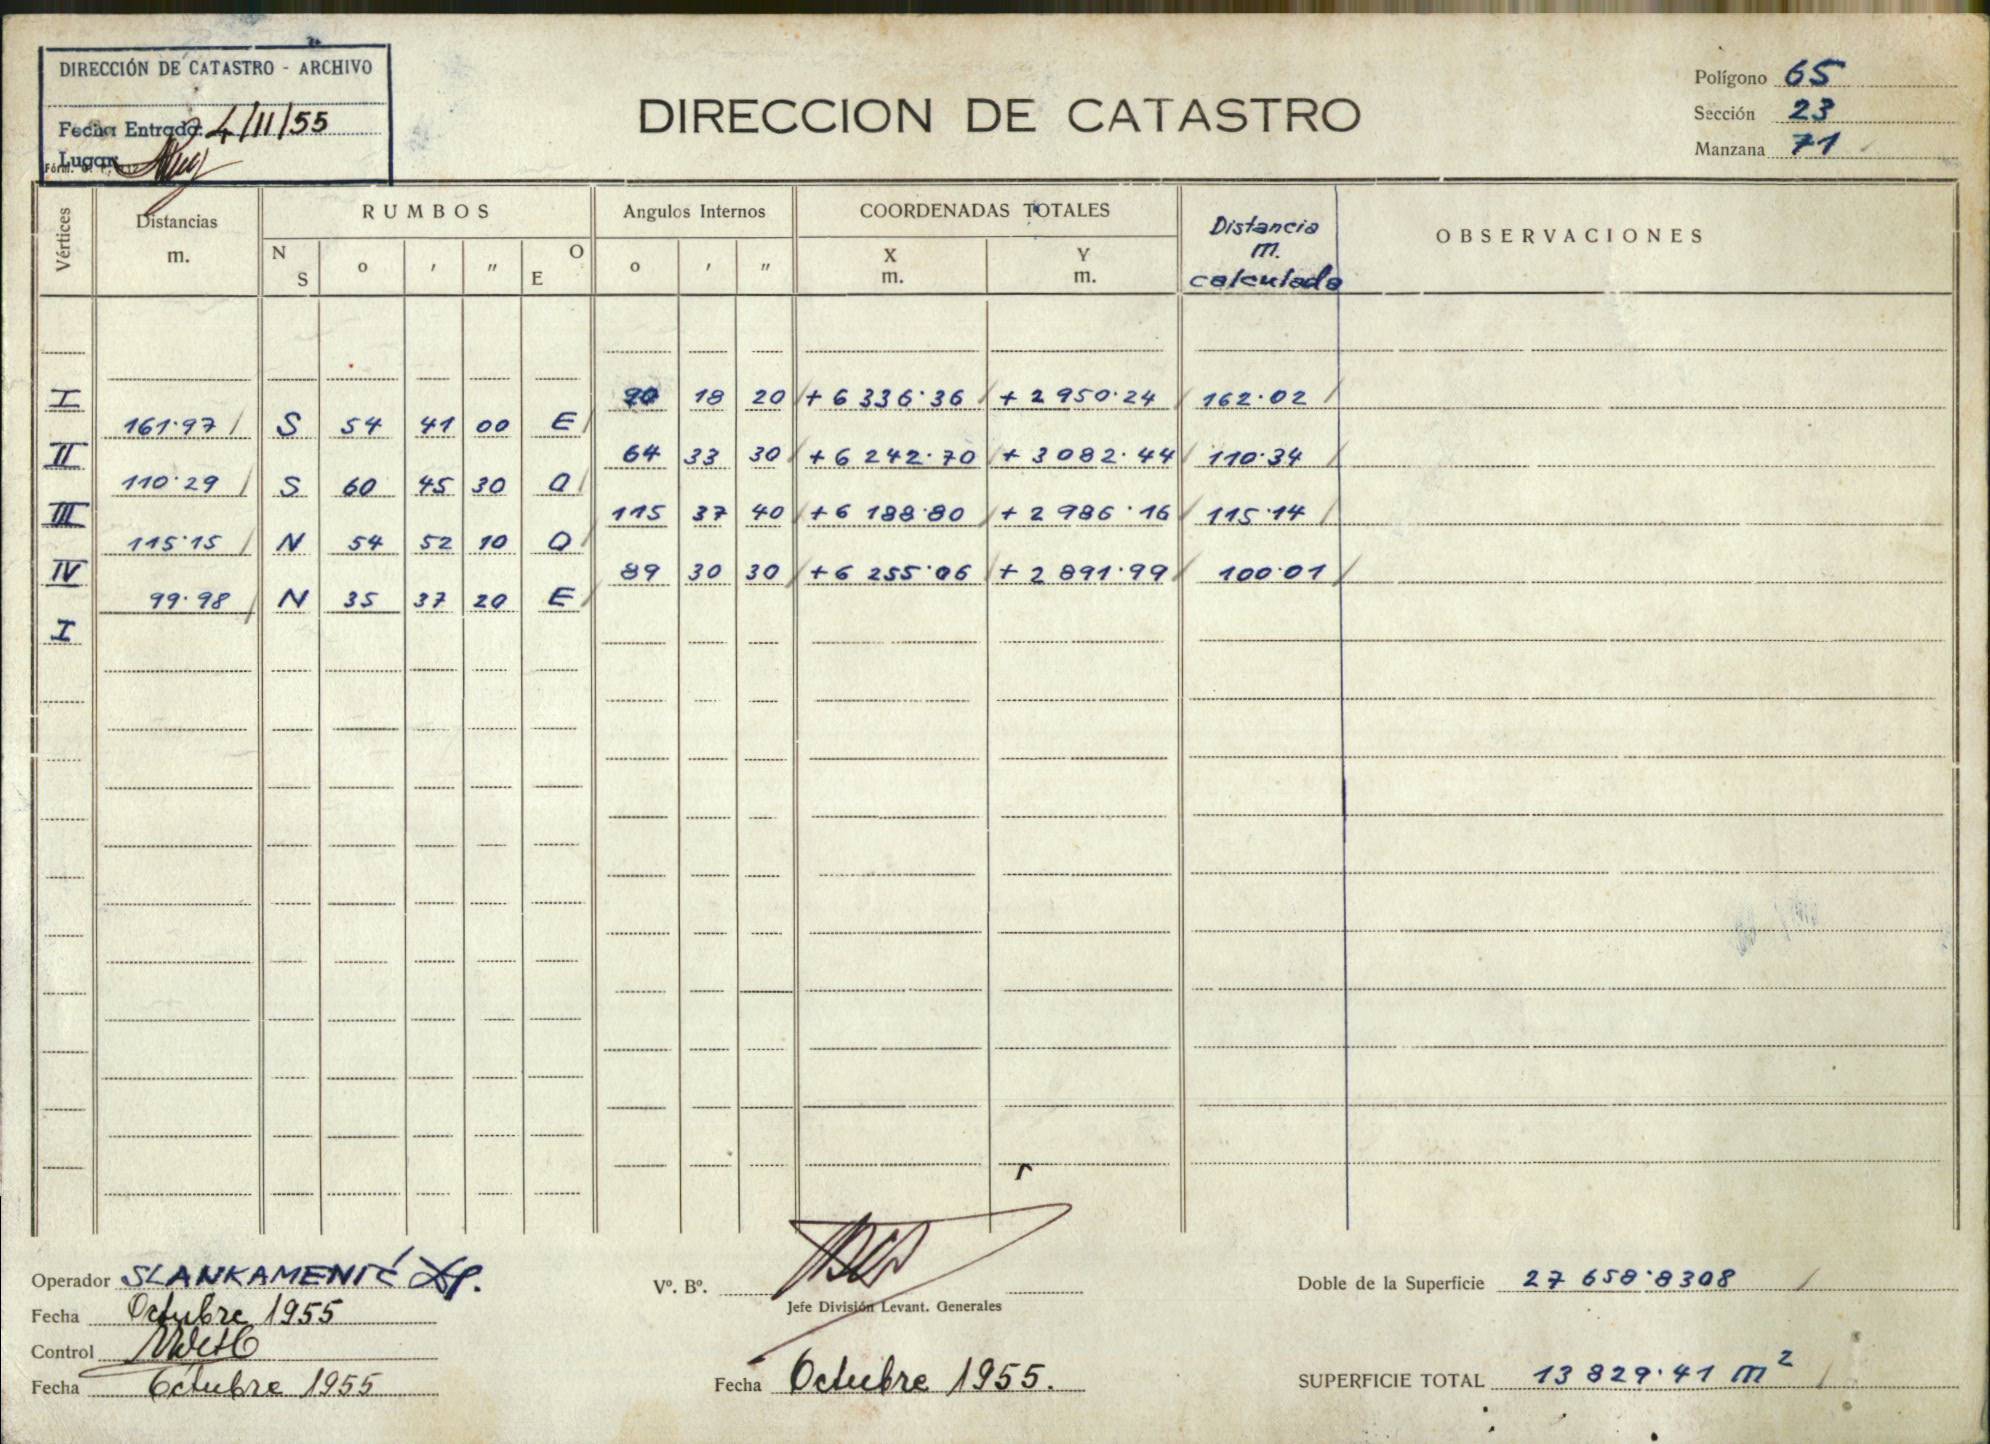 DIRECCIÓN DE CATASTRO - ARCHIVO
Fecha Entrada: 4/11/55
Lugar
DIRECCION DE CATASTRO
Polígono 65
Sección 23
Manzana 71
Vértices Distancias m. RUMBOS Angulos Internos COORDENADAS TOTALES Distancia m. calculada OBSERVACIONES
N S o ′ ″ O E o ′ ″ X m. Y m.
I 90 18 20 + 6 336.36 + 2 950.24 162.02
161.97 S 54 41 00 E
II 64 33 30 + 6 242.70 + 3 082.44 110.34
110.29 S 60 45 30 O
III 115 37 40 + 6 188.80 + 2 986.16 115.14
115.15 N 54 52 10 O
IV 89 30 30 + 6 255.06 + 2 891.99 100.01
99.98 N 35 37 20 E
I
Operador SLANKAMENIĆ
Fecha Octubre 1955
Control
Fecha Octubre 1955
Vº. Bº.
Jefe División Levant. Generales
Fecha Octubre 1955.
Doble de la Superficie 27 658.8308
SUPERFICIE TOTAL 13 829.41 m²